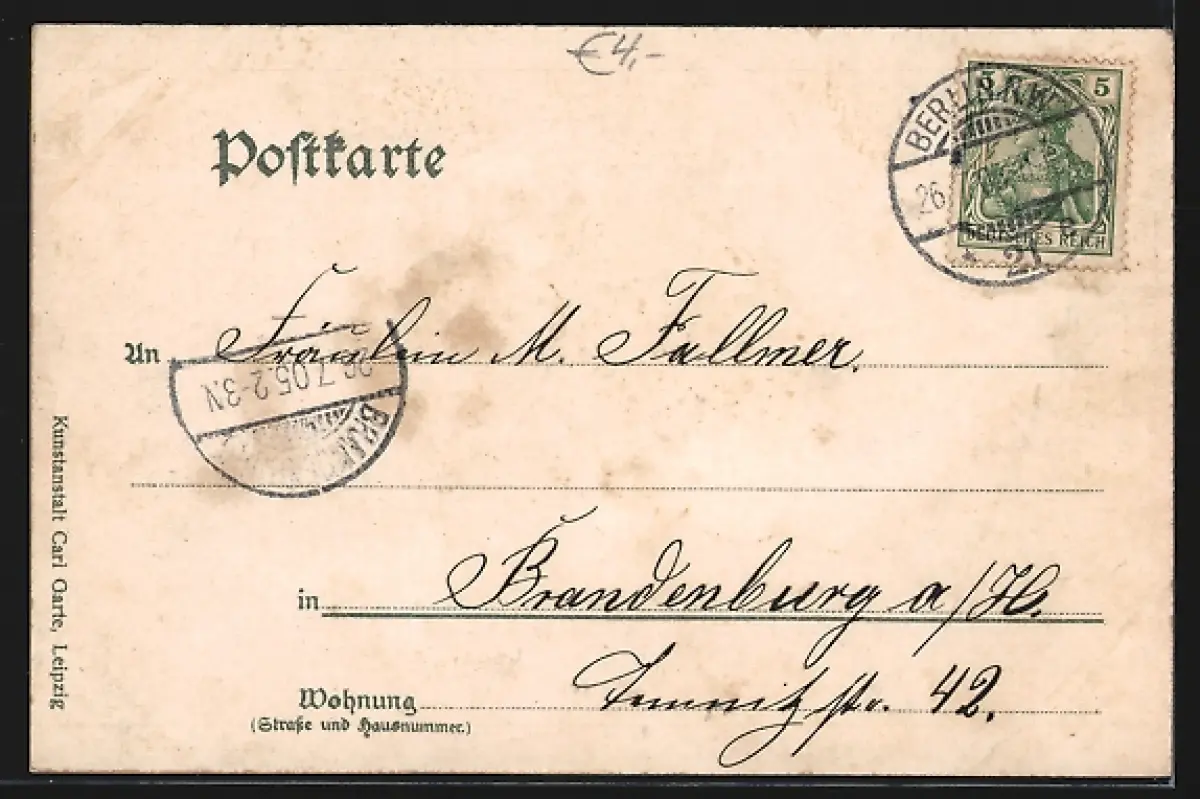 €4,-
5 5
BERLIN S.W.
26
21
DEUTSCHES REICH
Postkarte
An Fräulein M. Fallmer.
26.7.05.2-3N.
in Brandenburg a/H.
Wohnung
(Straße und Hausnummer.)
str. 42.
Kunstanstalt Carl Garte, Leipzig